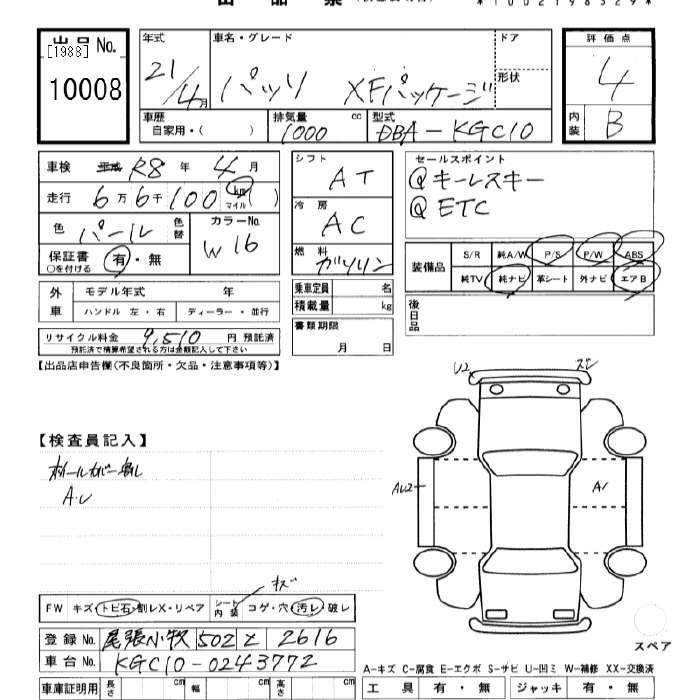 出品票
*1002198529*
出品No.
[1988]
10008
年式 車名・グレード ドア 評価点
21/4月 パッソ XFパッケージ 形状 4
車歴 自家用・( ) 排気量 cc 1000 型式 DBA-KGC10 内装 B
車検 平成 R8 年 4 月
走行 6 万 6 千 100 (km マイル)
色 パール 色替 カラーNo. W16
保証書 有・無
○を付ける
シフト AT
冷房 AC
燃料 ガソリン
セールスポイント
Qキーレスキー
Q ETC
装備品 S/R 純A/W P/S P/W ABS
純TV 純ナビ 革シート 外ナビ エアB
外車 モデル年式 年
ハンドル 左・右 ディーラー・並行
乗車定員 名
積載量 kg
後日品
リサイクル料金 9,510 円 預託済
預託済で精算希望される方は金額記入して下さい
書類期限
月 日
【出品店申告欄(不良箇所・欠品・注意事項等)】
U2
【検査員記入】
ホイールカバー無し
A.U
AU2
A1
キズ
FW キズ・トビ石・割レX・リペア シート内装 コゲ・穴・汚レ・破レ
登録No. 尾張小牧 502 と 2616
車台No. KGC10-0243772
車庫証明用 長さ cm 幅 cm 高さ cm
スペア
A-キズ C-腐食 E-エクボ S-サビ U-凹ミ W-補修 XX-交換済
工具 有・無 ジャッキ 有・無